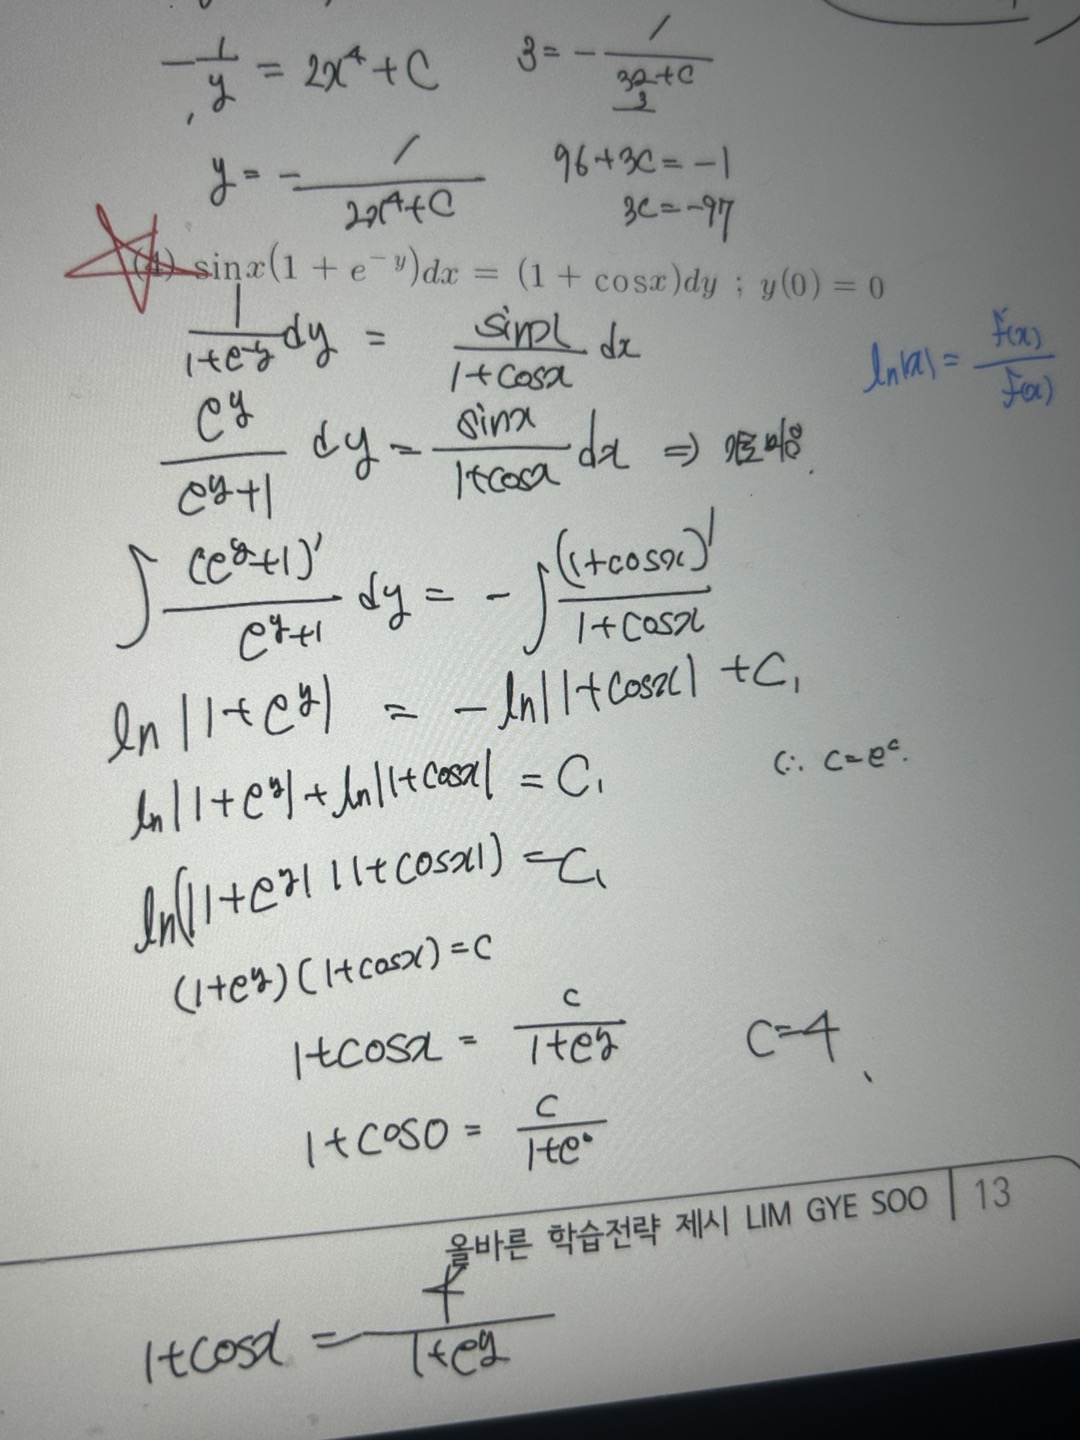 -1/y = 2x⁴+C
3 = -1/(32+C/3)
y = -1/(2x⁴+C)
96+3C = -1
3C = -97
(4) sinx(1+e⁻ʸ)dx = (1+cosx)dy ; y(0) = 0
1/(1+e⁻ʸ) dy = sinx/(1+cosx) dx
ln|x| = f'(x)/f(x)
eʸ/(eʸ+1) dy = sinx/(1+cosx) dx ⇒
∫ (eʸ+1)'/(eʸ+1) dy = -∫ (1+cosx)'/(1+cosx)
ln|1+eʸ| = -ln|1+cosx| +C₁
ln|1+eʸ|+ln|1+cosx| = C₁
(∴ C=eᶜ.
ln(|1+eʸ| |1+cosx|) = C₁
(1+eʸ)(1+cosx) = C
1+cosx = C/(1+eʸ)
C=4
1+cos0 = C/(1+e⁰)
올바른 학습전략 제시 LIM GYE SOO | 13
1+cosx = 4/(1+eʸ)